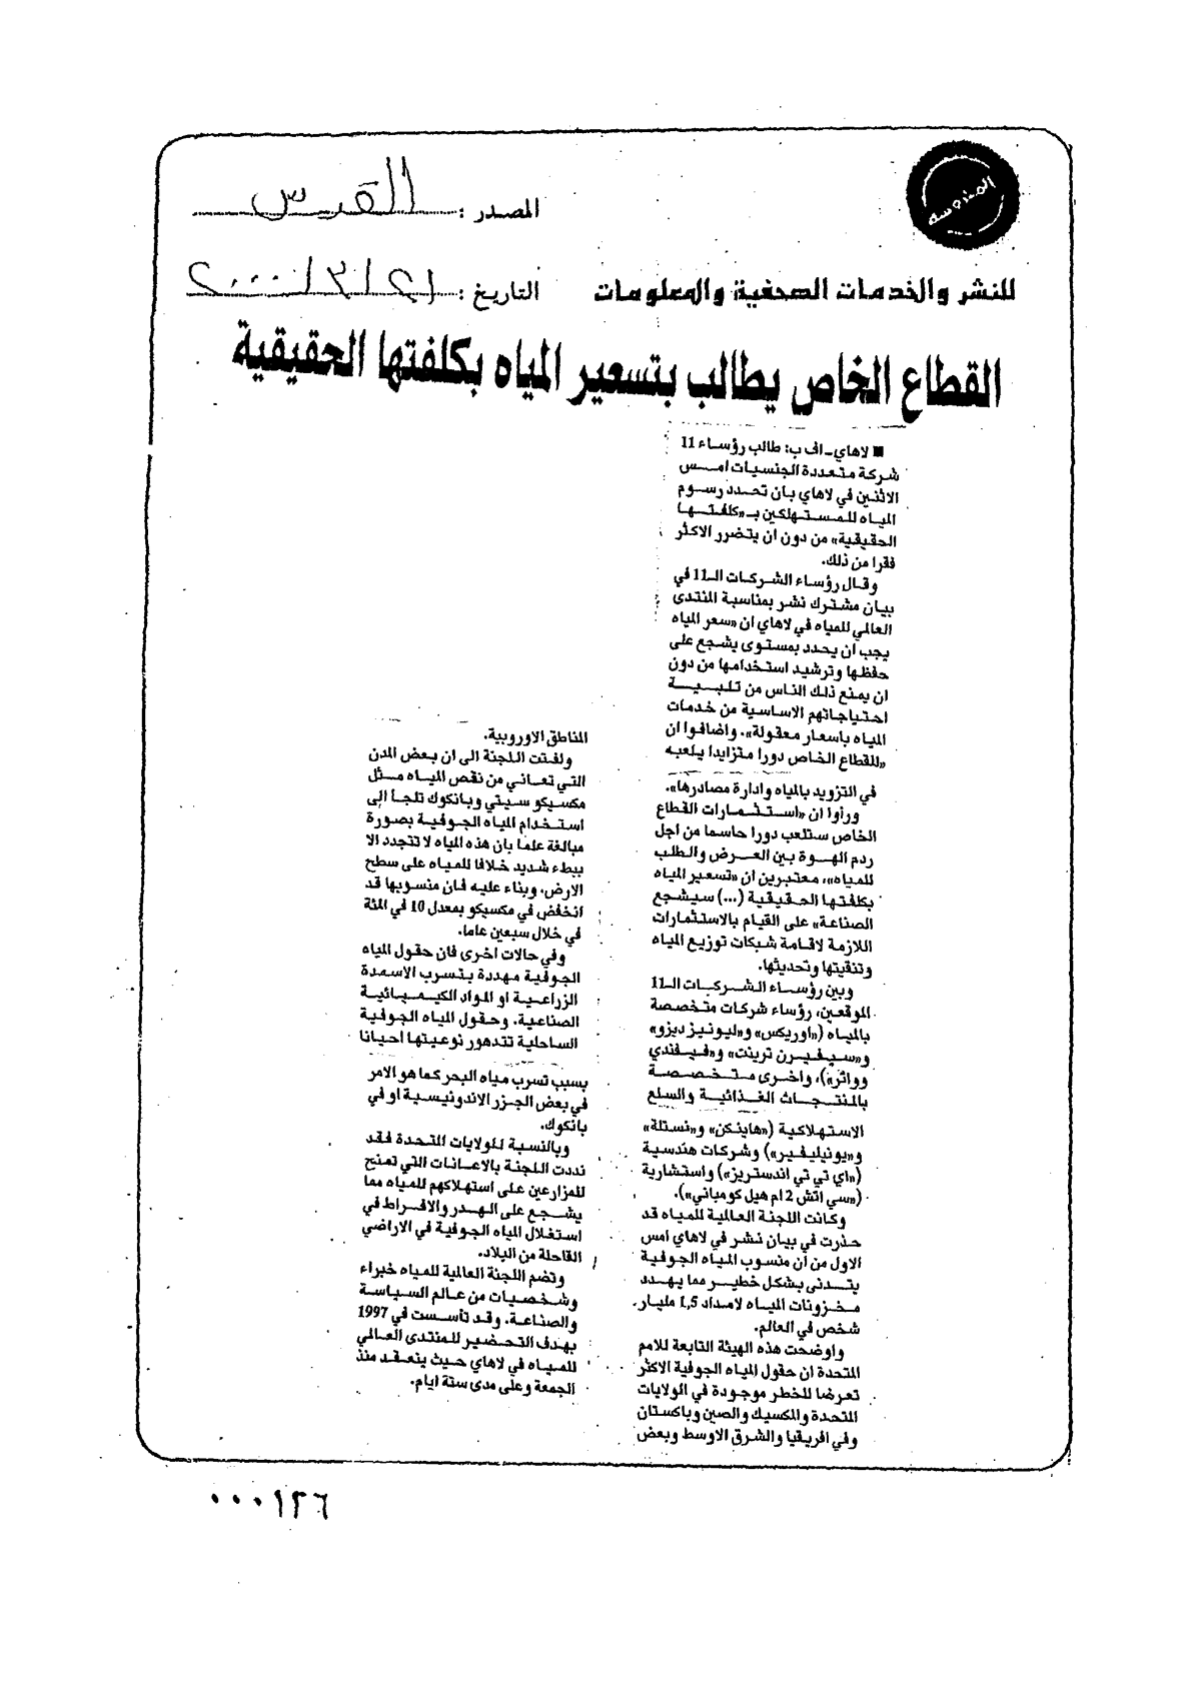 المصدر : القدس
للنشر والخدمات الصحفية والمعلومات
التاريخ : ٢١ / ٣ / ٢٠٠٠
القطاع الخاص يطالب بتسعير المياه بكلفتها الحقيقية
■ لاهاي ـ اف ب: طالب رؤساء 11
شركة متعددة الجنسيات امس
الاثنين في لاهاي بان تحدد رسوم
المياه للمستهلكين بـ«كلفتها
الحقيقية» من دون ان يتضرر الاكثر
فقرا من ذلك.
وقال رؤساء الشركات الـ11 في
بيان مشترك نشر بمناسبة المنتدى
العالمي للمياه في لاهاي ان «سعر المياه
يجب ان يحدد بمستوى يشجع على
حفظها وترشيد استخدامها من دون
ان يمنع ذلك الناس من تلبية
احتياجاتهم الاساسية من خدمات
المياه باسعار معقولة». واضافوا ان
«للقطاع الخاص دورا متزايدا يلعبه
في التزويد بالمياه وادارة مصادرها».
ورأوا ان «استثمارات القطاع
الخاص ستلعب دورا حاسما من اجل
ردم الهوة بين العرض والطلب
للمياه»، معتبرين ان «تسعير المياه
بكلفتها الحقيقية (...) سيشجع
الصناعة» على القيام بالاستثمارات
اللازمة لاقامة شبكات توزيع المياه
وتنقيتها وتحديثها.
وبين رؤساء الشركات الـ11
الموقعين، رؤساء شركات متخصصة
بالمياه («اوريكس» و«ليونيز ديزو»
و«سيفيرن ترينت» و«فيفندي
وواتر»)، واخرى متخصصة
بالمنتجات الغذائية والسلع
الاستهلاكية («هاينكن» و«نستلة»
و«يونيليفير») وشركات هندسية
(«اي تي تي اندستريز») واستشارية
(«سي اتش 2 ام هيل كومباني»).
وكانت اللجنة العالمية للمياه قد
حذرت في بيان نشر في لاهاي أمس
الاول من ان منسوب المياه الجوفية
يتدنى بشكل خطير مما يهدد
مخزونات المياه لامداد 1,5 مليار
شخص في العالم.
واوضحت هذه الهيئة التابعة للامم
المتحدة ان حقول المياه الجوفية الاكثر
تعرضا للخطر موجودة في الولايات
المتحدة والمكسيك والصين وباكستان
وفي افريقيا والشرق الاوسط وبعض
المناطق الاوروبية.
ولفتت اللجنة الى ان بعض المدن
التي تعاني من نقص المياه مثل
مكسيكو سيتي وبانكوك تلجأ الى
استخدام المياه الجوفية بصورة
مبالغة علما بان هذه المياه لا تتجدد الا
ببطء شديد خلافا للمياه على سطح
الارض. وبناء عليه فان منسوبها قد
انخفض في مكسيكو بمعدل 10 في المئة
في خلال سبعين عاما.
وفي حالات اخرى فان حقول المياه
الجوفية مهددة بتسرب الاسمدة
الزراعية او المواد الكيميائية
الصناعية. وحقول المياه الجوفية
الساحلية تتدهور نوعيتها احيانا
بسبب تسرب مياه البحر كما هو الامر
في بعض الجزر الاندونيسية او في
بانكوك.
وبالنسبة للولايات المتحدة فقد
نددت اللجنة بالاعانات التي تمنح
للمزارعين على استهلاكهم للمياه مما
يشجع على الهدر والافراط في
استغلال المياه الجوفية في الاراضي
القاحلة من البلاد.
وتضم اللجنة العالمية للمياه خبراء
وشخصيات من عالم السياسة
والصناعة. وقد تأسست في 1997
بهدف التحضير للمنتدى العالمي
للمياه في لاهاي حيث ينعقد منذ
الجمعة وعلى مدى ستة ايام.
٠٠٠١٢٦